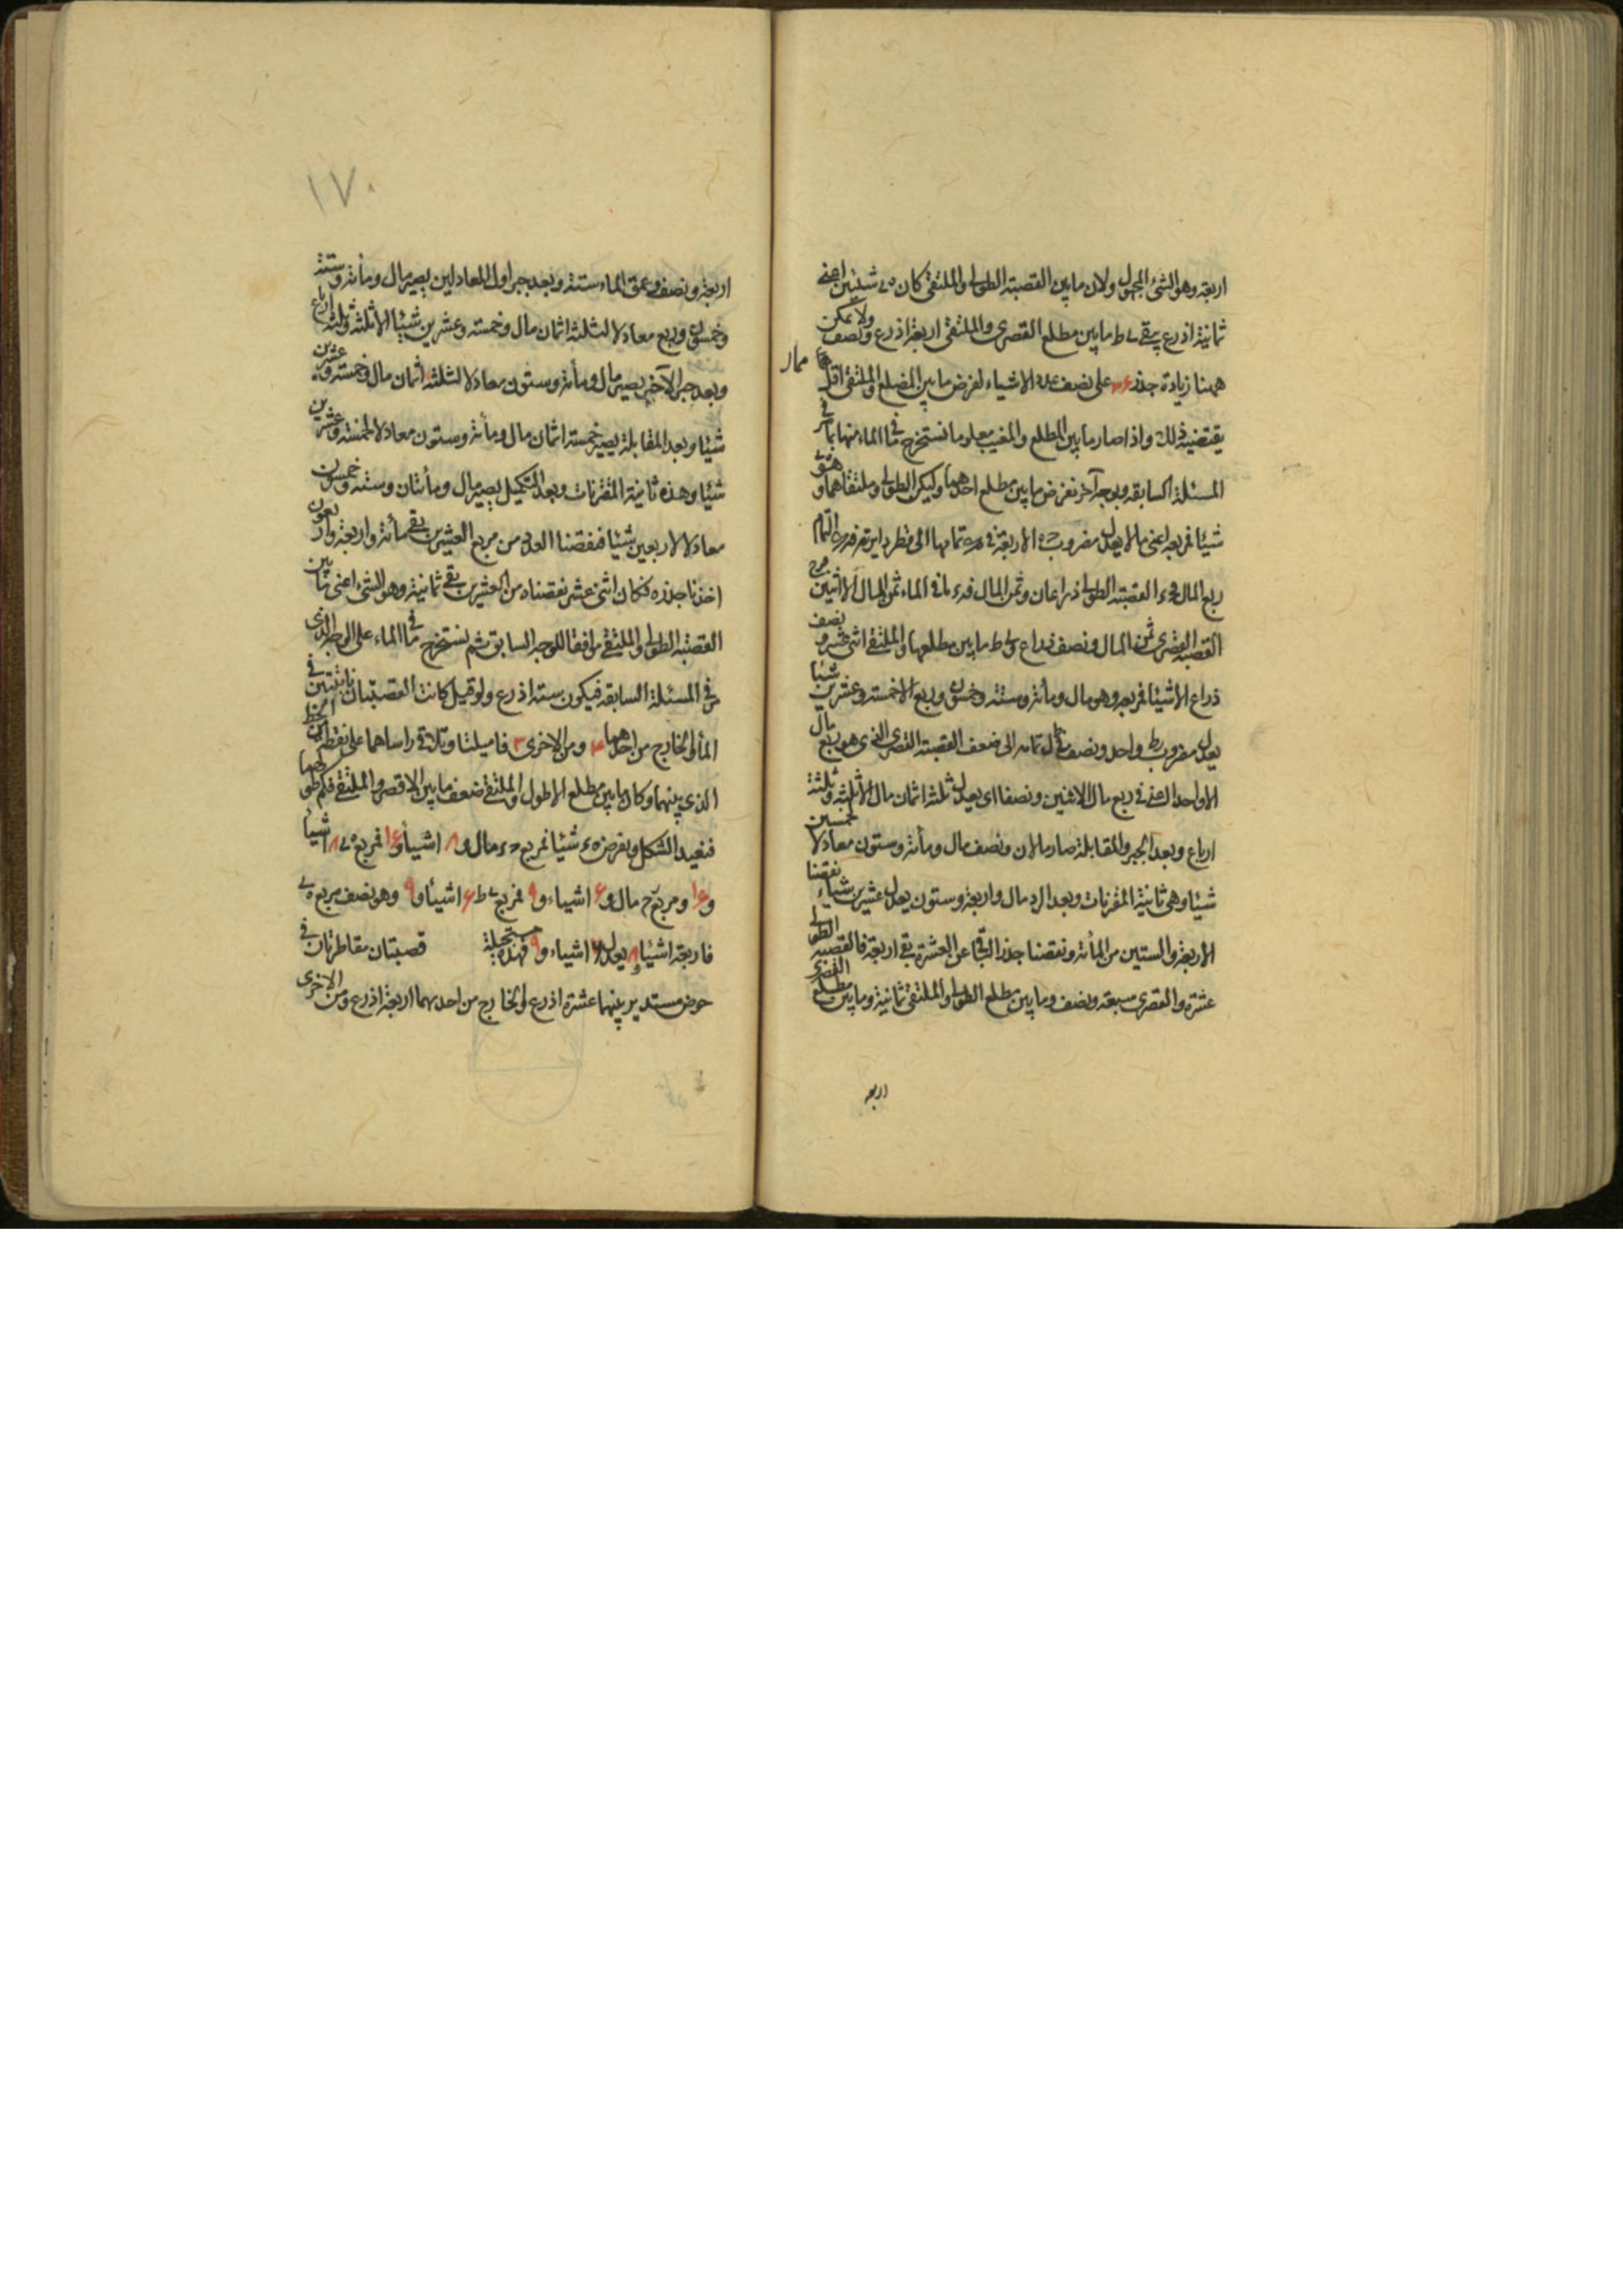 اربعة وهو الشئ المجهول ولان ما بين القصبة الطولى والملتقى كان شيئين اعنى
ثمانية اذرع يبقى ما بين مطلع القصرى والملتقى اربعة اذرع ونصف ولا يمكن
ههنا زيادة جذر على نصف عدد الاشياء لفرض ما بين المطلع والملتقى اقل
يقتضيه ذلك واذا صار ما بين المطلع والمغيب معلوما نستخرج ما فى الماء منها بما مر فى
المسئلة السابقة وبوجه آخر نفرض ما بين مطلع احدهما وليكن الطولى وملتقاهما
شيئا فمربعه اعنى مالا يعدل مضروب الاربعة فى تمامها الى قطر دايرة
ربع المال القصبة الطولى ذراعان وثمن المال ما فى الماء ثمن المال الا اثنين
القصبة القصرى ثمن المال ونصف ذراع ما بين مطلعها والملتقى اثنى عشر ونصف
ذراع الا شيئا فمربعه وهو مال ومأئة وستة وخمسون وربع الا خمسة وعشرين شيئا
يعدل مضروب واحد ونصف فى تمامه الى ضعف القصبة القصرى الذى هو ربع مال
الا واحدا اعنى فى ربع مال الا اثنين ونصفا اى يعدل ثلثة اثمان مال الا ثلثة وثلثة
ارباع وبعد الجبر والمقابلة صار مالان ونصف مال ومأئة وستون معادلا لخمسين
شيئا وهى ثانية المقترنات وبعد الرد مال واربعة وستون يعدل عشرين شيئا نقصنا
الاربعة والستين من المأئة ونقصنا جذر الباقى عن العشرة بقى اربعة فالقصبة الطولى
عشرة والقصرى سبعة ونصف وما بين مطلع الطولى والملتقى ثمانية وما بين مطلع القصرى
اربعة
١٧٠
اربعة ونصف وعمق الماء ستة وبعد جبر اول المعادلين يصير مال ومأئة وستة
وخمسون وربع معادلا لثلثة اثمان مال وخمسة وعشرين شيئا الا ثلثة وثلثة ارباع
وبعد جبر الآخر يصير مال ومأئة وستون معادلا لثلثة اثمان مال وخمسة وعشرين
شيئا وبعد المقابلة يصير خمسة اثمان مال ومأئة وستون معادلا لخمسة وعشرين
شيئا وهذه ثانية المقترنات وبعد التكميل يصير مال ومأئتان وستة وخمسون
معادلا لاربعين شيئا فنقصنا العدد من مربع العشرين بقى مأئة واربعة واربعون
اخذنا جذره فكان اثنى عشر نقصناه من العشرين بقى ثمانية وهو الشئ اعنى ما بين
القصبة الطولى والملتقى موافقا للوجه السابق ثم نستخرج ما فى الماء على الوجه الذى
مر فى المسئلة السابقة فيكون ستة اذرع ولو قيل كانت القصبتان نابتتين فى
الماء والخارج من احدهما ٤ ومن الاخرى ٣ فاميلتا وتلاقى راساهما على نقطة من الخط
الذى بينهما وكان ما بين مطلع الاطول والملتقى ضعف ما بين الاقصر والملتقى فكم طولهما
فنعيد الشكل ونفرض شيئا فمربع مال و ٨ اشياء و ١٦ فمربع ٨ اشيأ
و ١٦ ومربع مال و ٦ اشياء و ٩ فمربع ٦ اشيأ و ٩ وهو نصف مربع
فاربعة اشيأ و ٨ يعدل ٦ اشياء و ٩ فهذه مستحيلة قصبتان متقاطرتان فى
حوض مستدير بينهما عشرة اذرع والخارج من احدهما اربعة اذرع ومن الاخرى